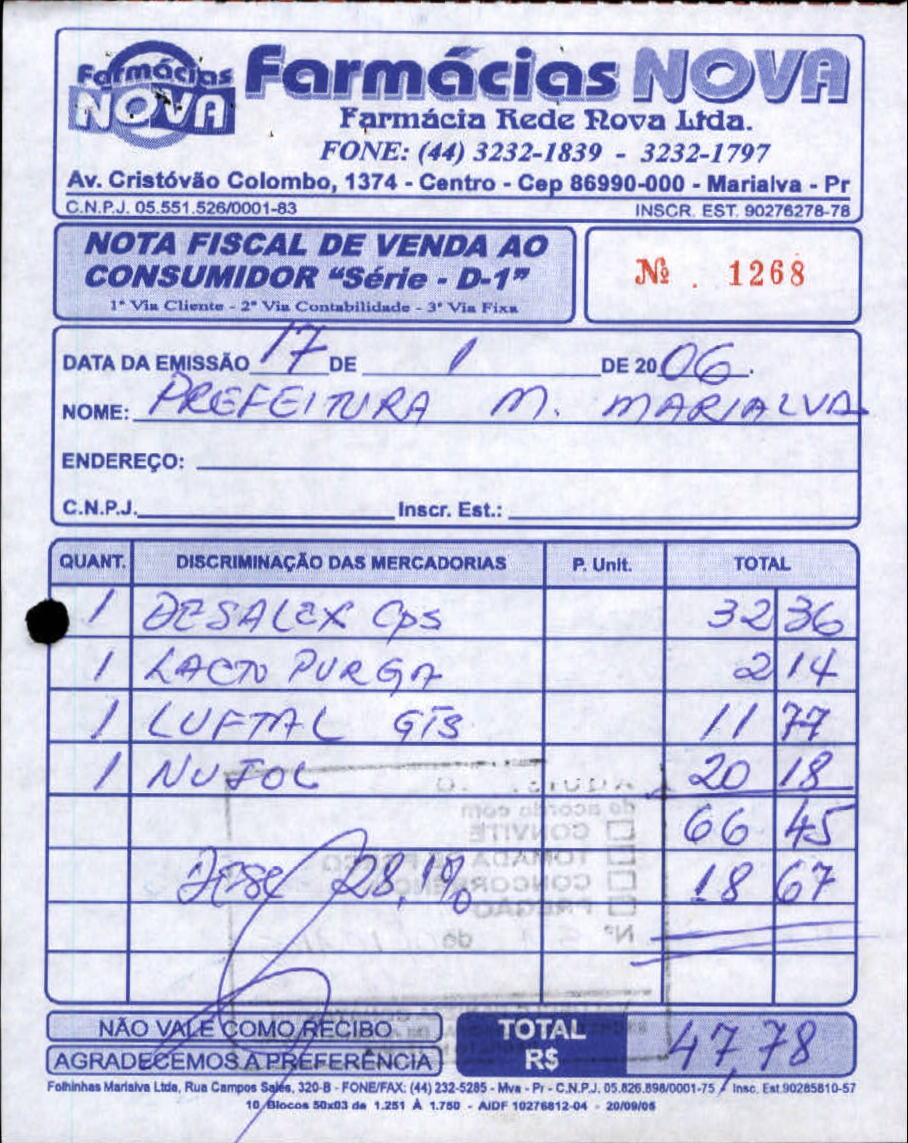 Farmácias NOVA Farmácias NOVA
Farmácia Rede Nova Ltda.
FONE: (44) 3232-1839 - 3232-1797
Av. Cristóvão Colombo, 1374 - Centro - Cep 86990-000 - Marialva - Pr
C.N.P.J. 05.551.526/0001-83 INSCR. EST. 90276278-78
NOTA FISCAL DE VENDA AO
CONSUMIDOR "Série - D-1"
1ª Via Cliente - 2ª Via Contabilidade - 3ª Via Fixa
Nº . 1268
DATA DA EMISSÃO 17 DE 1 DE 2006.
NOME: PREFEITURA M. MARIALVA
ENDEREÇO:
C.N.P.J. Inscr. Est.:
QUANT. DISCRIMINAÇÃO DAS MERCADORIAS P. Unit. TOTAL
1 DESALEX Cps 32 36
1 LACTO PURGA 2 14
1 LUFTAL GTS 11 77
1 NUJOL 20 18
66 45
Desc 28,1% 18 67
de acordo com
CONVITE
TOMADA DE PREÇO
CONCORRÊNCIA
PREGÃO
Nº de
NÃO VALE COMO RECIBO
AGRADECEMOS A PREFERÊNCIA
TOTAL
R$ 47,78
Folhinhas Marialva Ltda, Rua Campos Sales, 320-B - FONE/FAX: (44) 232-5285 - Mva - Pr - C.N.P.J. 05.826.898/0001-75 / Insc. Est.90285810-57
10 Blocos 50x03 de 1.251 À 1.750 - AIDF 10276812-04 - 20/09/05